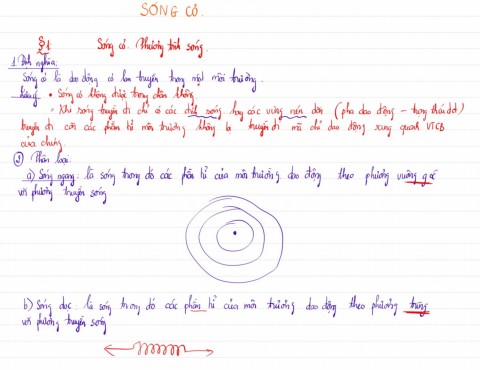 SÓNG CƠ.
§1 Sóng cơ. Phương trình sóng.
1. Định nghĩa:
Sóng cơ là dao động cơ lan truyền trong một môi trường.
• Sóng cơ không được trong chân không.
• Khi sóng truyền đi chỉ có các đỉnh sóng hay các vùng nén dãn (pha dao động - trạng thái dđ)
truyền đi còn các phần tử môi trường không bị truyền đi mà chỉ dao động xung quanh VTCB
của chúng.
② Phân loại:
a) Sóng ngang: là sóng trong đó các phần tử của môi trường dao động theo phương vuông góc
với phương truyền sóng
b) Sóng dọc: là sóng trong đó các phần tử của môi trường dao động theo phương trùng
với phương truyền sóng